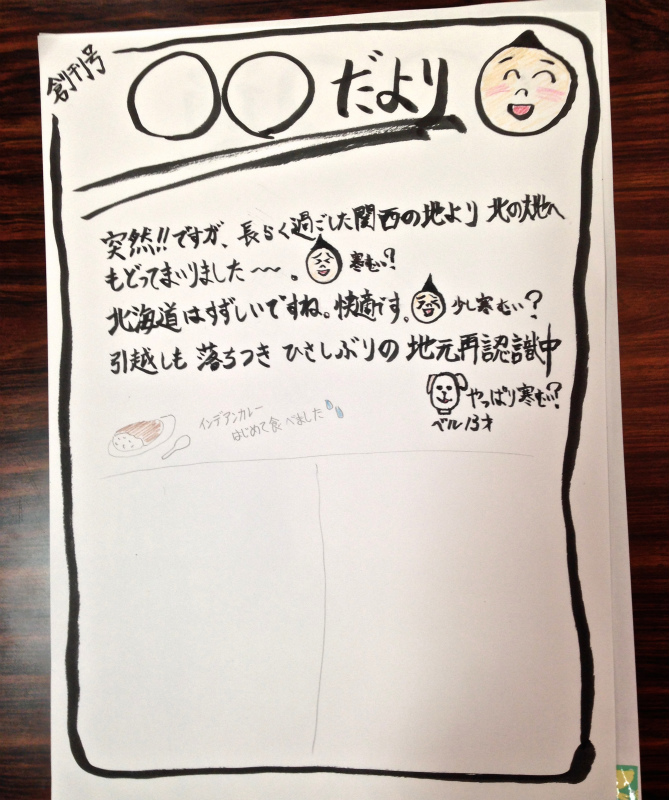 創刊号
〇〇だより
突然!!ですが、長らく過ごした関西の地より 北の大地へ
もどってまいりました〜〜。 寒むい?
北海道はすずしいですね。快適です。 少し寒むい?
引越しも 落ちつき ひさしぶりの 地元再認識中
やっぱり寒むい?
ベル13才
インデアンカレー
はじめて食べました